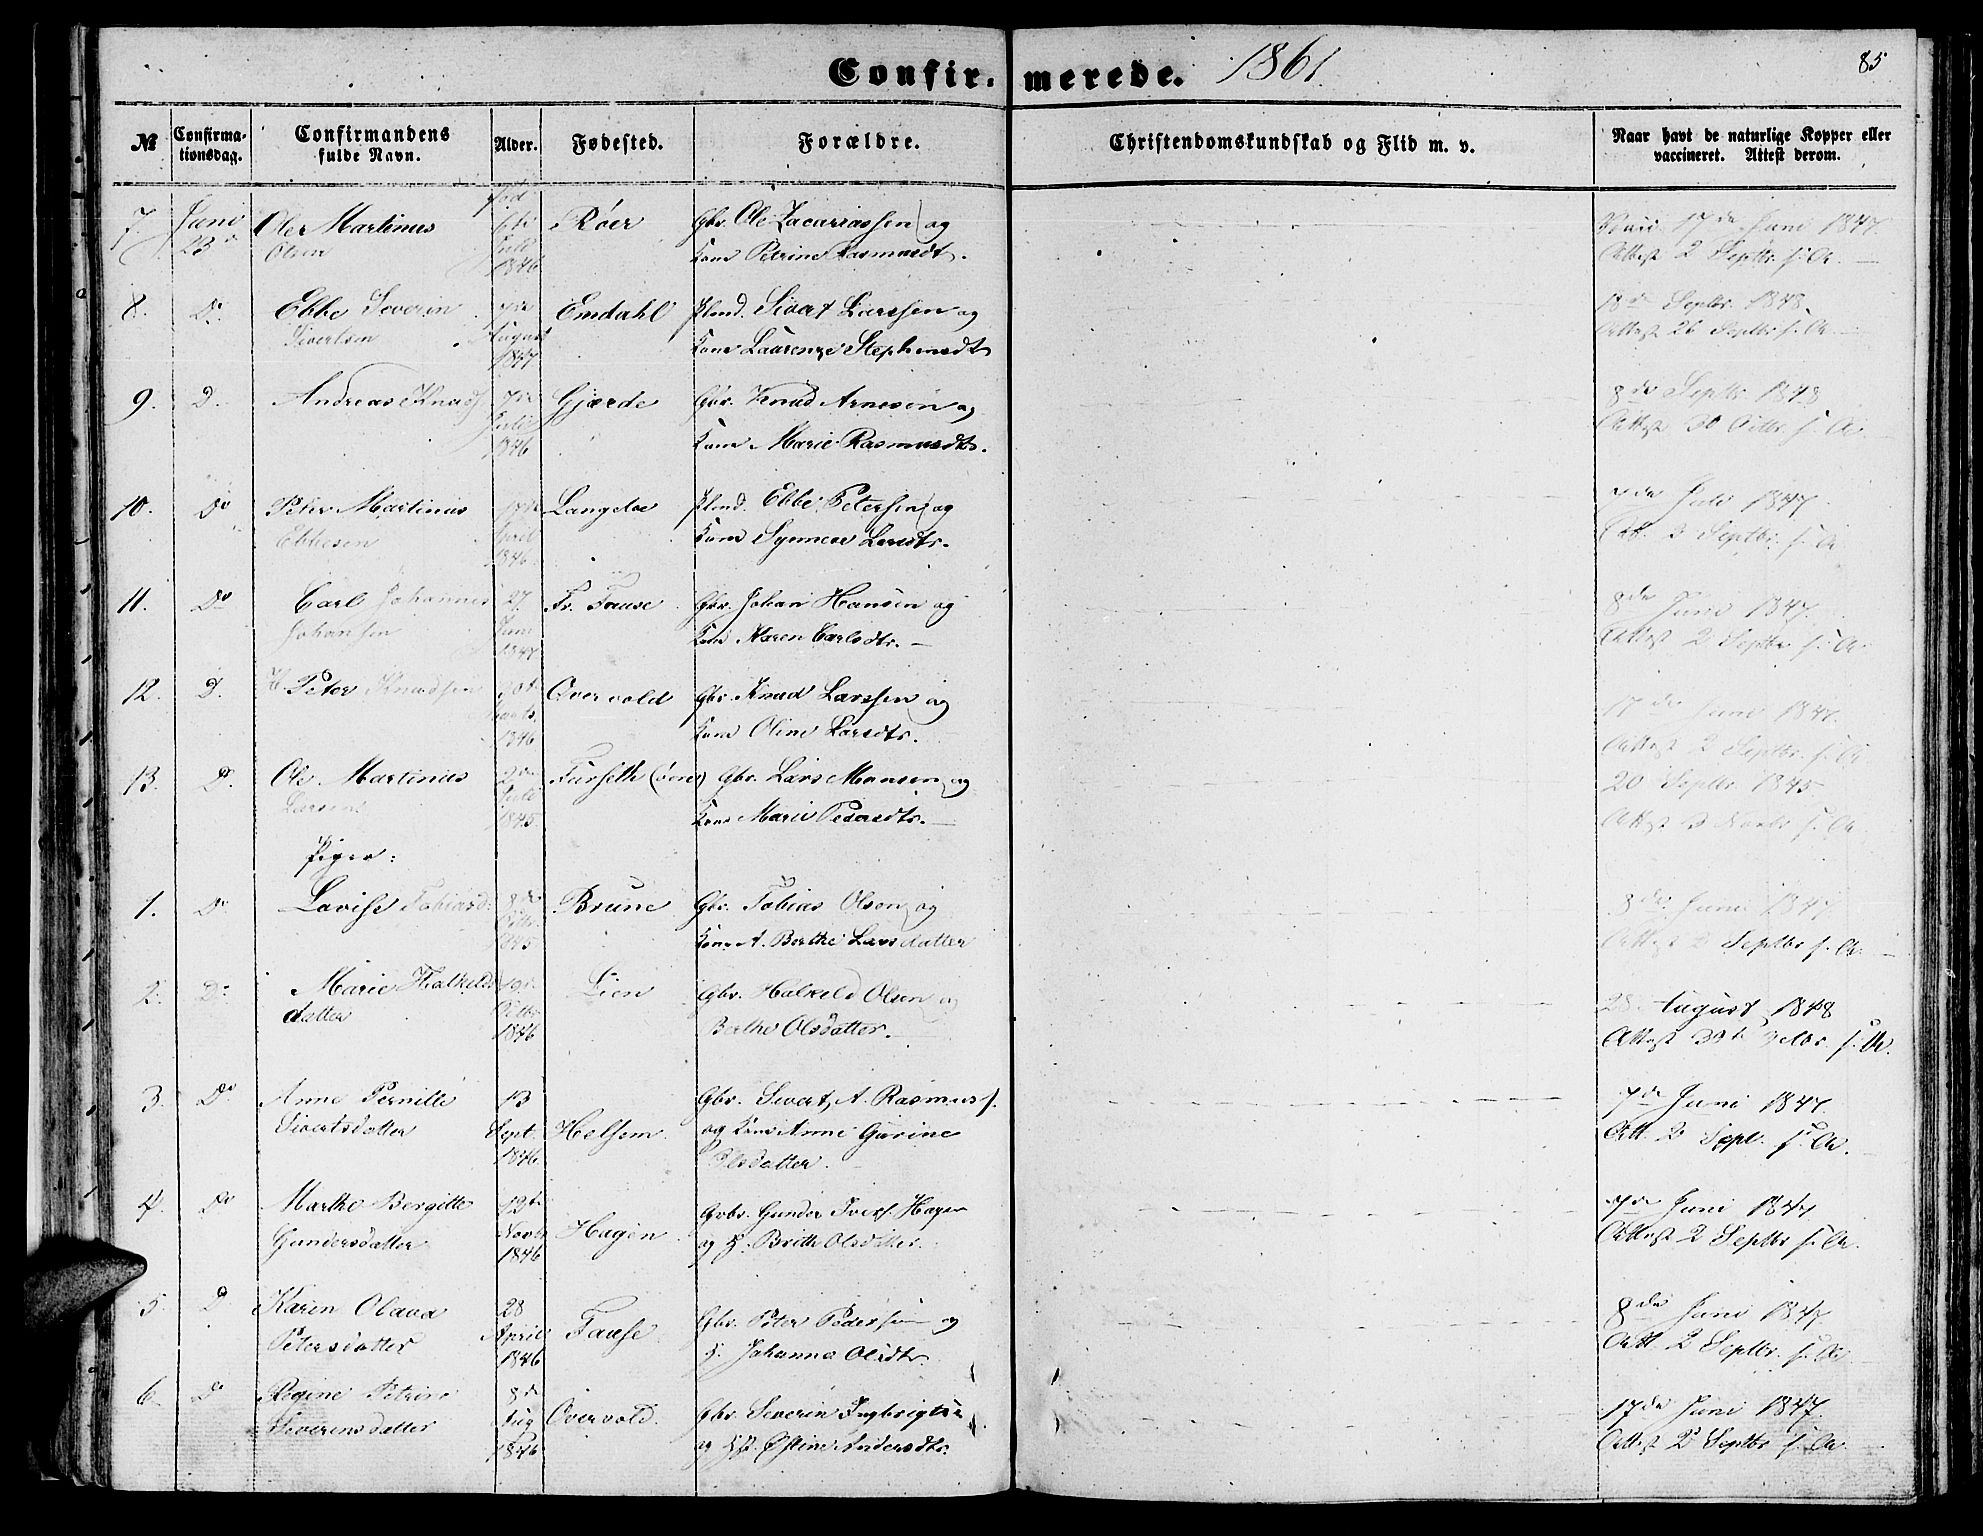 Confir- merede. 1861. 85
№ Confirma-tionsdag. Confirmandens fulde Navn. Alder. Fødested. Forældre. Christendomskundskab og Flid m. v. Naar havt de naturlige Kopper eller vaccineret. Attest derom.
7. Juni 23 Ole Martinus Olsen født 6te Juli 1846 Røer Gbr. Ole Zacariassen og
Kone Petrine Rasmusdt. 17de Juni 1847.
Attest 2 Septbr. s. A.
8. Do Ebbe Severin Sivertsen August 1847 Emdahl Plmd. Sivert Larssen og
Kone Laurenze Stephensdt 18de Septbr. 1848.
Attest 26 Septbr. s. A.
9. D. Andreas Knuds. 7de Juli 1846 Gjærde Gbr. Knud Arnesen og
Kone Marie Rasmusdtr. 8de Septbr. 1848
Attest 30 Octbr. s. A.
10. Do Peter Martinus Ebbesen April 1846 Langeloe Plmd. Ebbe Petersen og
Kone Synneve Larsdtr. 7de Juli 1847
Att. 2 Septbr. s. A
11. Do Carl Johannes Johansen 27. Juni 1847 Fr. Fause Gbr. Johan Hansen og
Kone Karen Carlsdtr. 8de Juni 1847
Attest 2 Septbr s. A.
12. D. Peter Knudsen 30te Marts 1846 Overvold Gbr. Knud Larssen og
Kone Oline Larsdtr. 17de Juni 1847.
Attest 2 Septbr. s. A
13. D. Ole Martinus Larsen 2den Juli 1845 Furseth Gbr. Lars Monsen og
Kone Marie Pedersdtr. 20 Septbr. 1845
Attest 3 s. A.
Piger:
1. Do Lovise Tobiasd. 8de Octbr. 1845 Brune Gbr. Tobias Olsen og
Kone A. Berthe Larsdatter 8de Juni 1847
Attest 2 Septbr s. A.
2. Do Marie Halkelds datter Octbr 1846 Lien Gbr. Halkeld Olsen og
Berthe Olsdatter. 28 August 1848
Attest s. A.
3. Do Anne Pernille Sivertsdatter 13 Sept. 1846 Helsem Gbr. Sivert A. Rasmuss.
og Kone Anne Gurine
Olsdatter. 7de Juni 1847.
Att. 2 Sept. s. A.
4. Do Marthe Bergitte Gundersdatter Novbr 1846 Hagen Gbr. Gunder Ivers. Hagen
og H. Brithe Olsdatter. 7de Juni 1847
Attest 2 Septbr s. A.
5. D. Karen Olava Petersdatter 28 April 1846 Fause Gbr. Peter Pedersen og
H. Johanna Olsdtr. 8de Juni 1847
Att. 2 Septbr. s. A
6. Do Regine Petrine Severinsdatter 8de Aug 1846 Overvold. Gbr. Severin Ingbrigtsen
og H. Østine Andersdtr. 17de Juni 1847.
Attest 2 Septbr s. A.